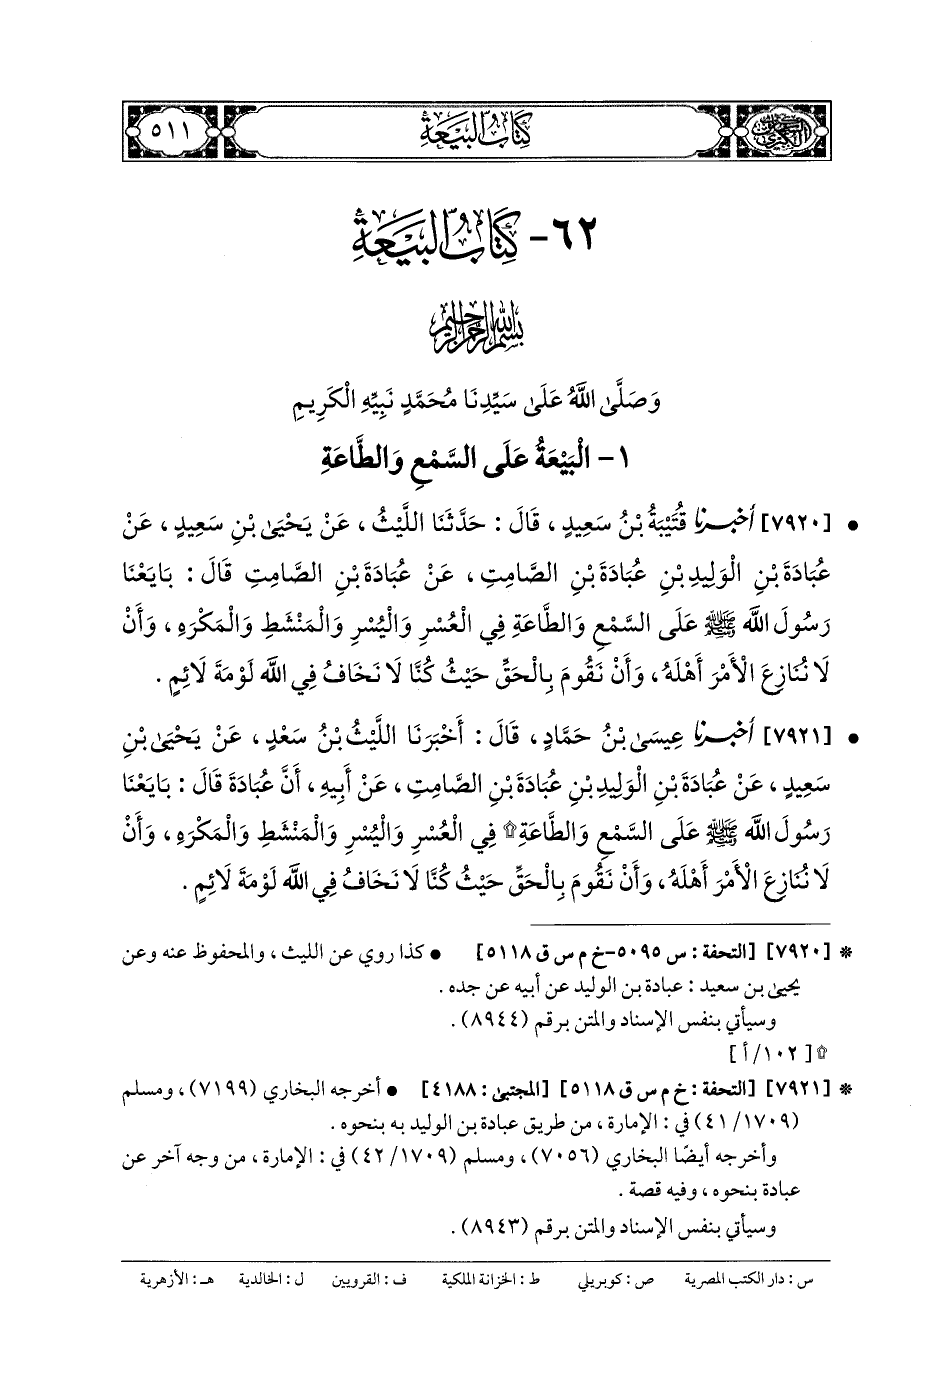 كتاب البيعة
٥١١
٦٢- كِتَابُ البَيْعَةِ
بسم الله الرحمن الرحيم
وَصَلَّى اللَّهُ عَلَى سَيِّدِنَا مُحَمَّدٍ نَبِيِّهِ الْكَرِيمِ
١- الْبَيْعَةُ عَلَى السَّمْعِ وَالطَّاعَةِ
• [٧٩٢٠] أخبرنا قُتَيْبَةُ بْنُ سَعِيدٍ ، قَالَ : حَدَّثَنَا اللَّيْثُ ، عَنْ يَحْيَى بْنِ سَعِيدٍ ، عَنْ
عُبَادَةَ بْنِ الْوَلِيدِ بْنِ عُبَادَةَ بْنِ الصَّامِتِ ، عَنْ عُبَادَةَ بْنِ الصَّامِتِ قَالَ : بَايَعْنَا
رَسُولَ اللَّه ﷺ عَلَى السَّمْعِ وَالطَّاعَةِ فِي الْعُسْرِ وَالْيُسْرِ وَالْمَنْشَطِ وَالْمَكْرَهِ ، وَأَنْ
لَا نُنَازِعَ الْأَمْرَ أَهْلَهُ ، وَأَنْ نَقُومَ بِالْحَقِّ حَيْثُ كُنَّا لَا نَخَافُ فِي اللَّه لَوْمَةَ لَائِمٍ .
• [٧٩٢١] أخبرنا عِيسَى بْنُ حَمَّادٍ ، قَالَ : أَخْبَرَنَا اللَّيْثُ بْنُ سَعْدٍ ، عَنْ يَحْيَى بْنِ
سَعِيدٍ ، عَنْ عُبَادَةَ بْنِ الْوَلِيدِ بْنِ عُبَادَةَ بْنِ الصَّامِتِ ، عَنْ أَبِيهِ ، أَنَّ عُبَادَةَ قَالَ : بَايَعْنَا
رَسُولَ اللَّه ﷺ عَلَى السَّمْعِ وَالطَّاعَةِ۩ فِي الْعُسْرِ وَالْيُسْرِ وَالْمَنْشَطِ وَالْمَكْرَهِ ، وَأَنْ
لَا نُنَازِعَ الْأَمْرَ أَهْلَهُ ، وَأَنْ نَقُومَ بِالْحَقِّ حَيْثُ كُنَّا لَا نَخَافُ فِي اللَّه لَوْمَةَ لَائِمٍ .
* [٧٩٢٠] [التحفة : س ٥٠٩٥-خ م س ق ٥١١٨] • كذا روي عن الليث ، والمحفوظ عنه وعن
يحيى بن سعيد : عبادة بن الوليد عن أبيه عن جده .
وسيأتي بنفس الإسناد والمتن برقم (٨٩٤٤) .
۩ [١٠٢/ أ]
* [٧٩٢١] [التحفة : خ م س ق ٥١١٨] [المجتبى : ٤١٨٨] • أخرجه البخاري (٧١٩٩) ، ومسلم
(١٧٠٩/ ٤١) في : الإمارة ، من طريق عبادة بن الوليد به بنحوه .
وأخرجه أيضًا البخاري (٧٠٥٦) ، ومسلم (١٧٠٩/ ٤٢) في : الإمارة ، من وجه آخر عن
عبادة بنحوه ، وفيه قصة .
وسيأتي بنفس الإسناد والمتن برقم (٨٩٤٣) .
س : دار الكتب المصرية ص : كوبريلي ط : الخزانة الملكية ف : القرويين ل : الخالدية هـ : الأزهرية